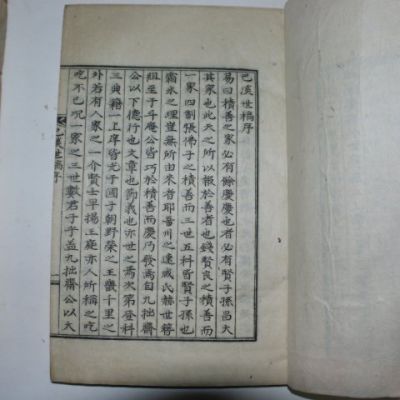 巴溪世稿序
易曰積善之家必有餘慶慶也者必有賢子孫昌大
其家也此天之所以報於善者也錢賢良之積善而
一家四割張佛子之積善而三世五科皆
霜水之理豈無所由來者耶晉州之遠咸氏赫世簪
組至于斗庵公皆巧於積善而慶乃發焉自九拙齋
公以下德行也文章也勤義也亦世之焉次第登科
三典籍一上庠皆光于國子朝野榮之王畿千里之
外若有人家之一介賢士早揚王庭亦人所稱之吃
吃不已况一家之三世數君子乎盖九拙齋公以天
巴溪世稿序